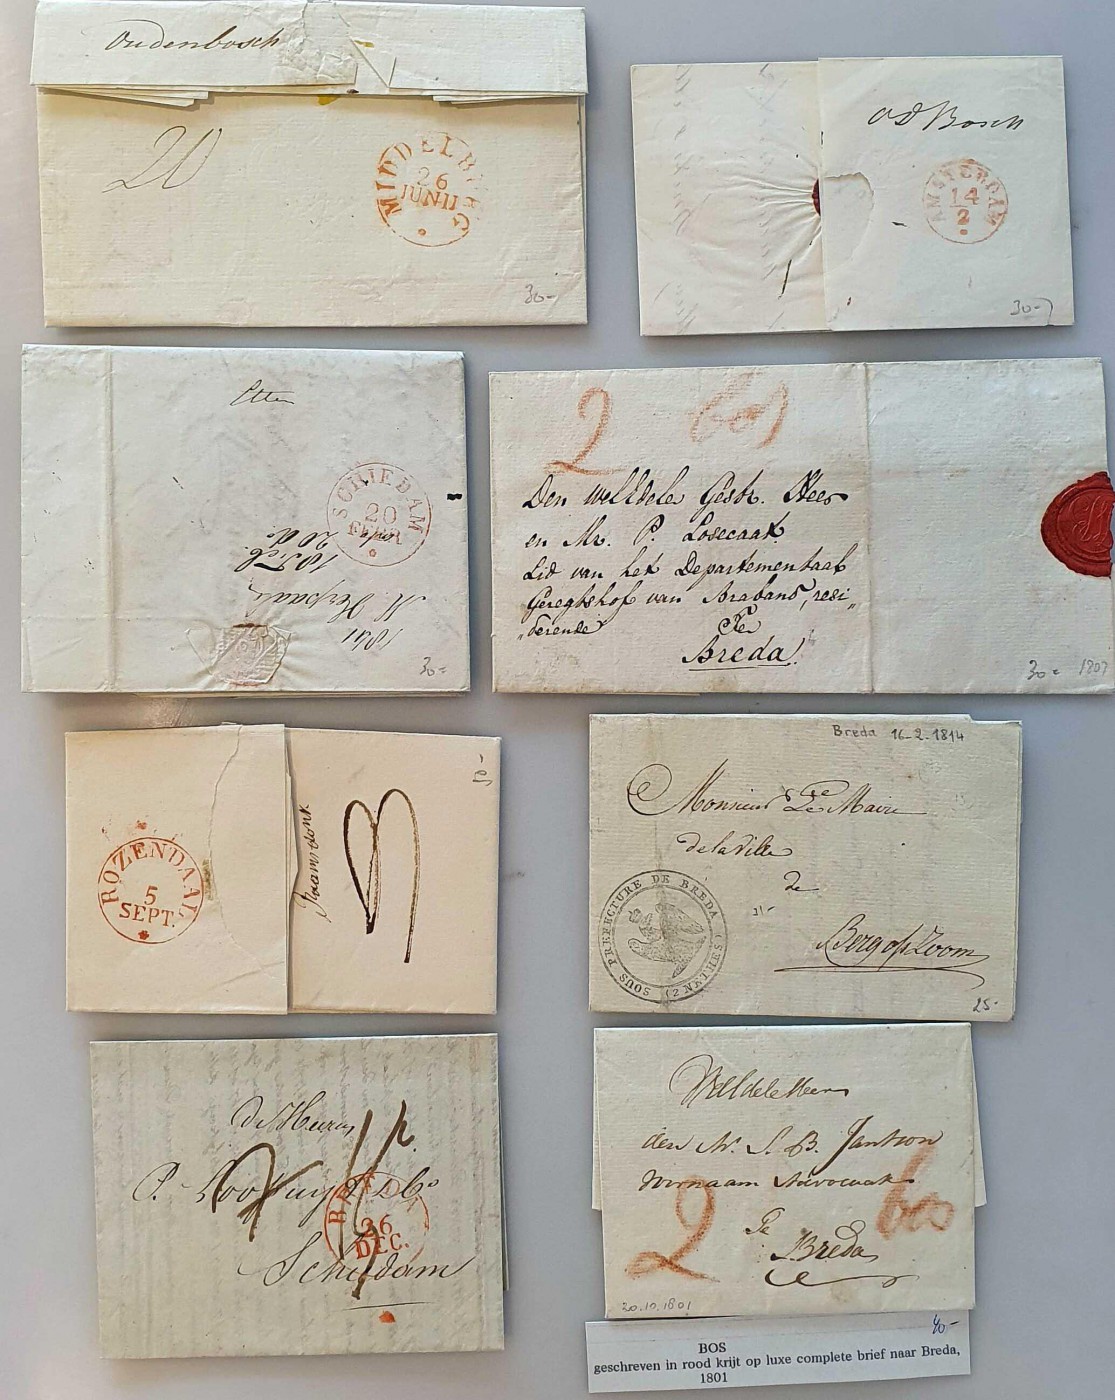 Oudenbosch
20
MIDDELBURG
26
JUNII
30-
O D Bosch
AMSTERDAM
14
2
30-
Etten
SCHIEDAM
20
FEBR
1841
30-
2 bos
Den WelEdele Gestr. Heer
en Mr. P. Losecaat
Lid van het Departementaal
Geregtshof van Braband, resi„
„derende Ter
Breda.
30- 1807
ROZENDAAL
5
SEPT.
Raamsdonk
3
Breda 16-2-1814
Monsieur Le Maire
de la Ville
de
Berg op Zoom
SOUS PREFECTURE DE BREDA (2 NETHES)
25-
De Heeren
P.
Schiedam
BREDA
26
DEC.
WelEdele Heer
den Mr. S. B. Jantzon
Voornaam Advocaat
Te
Breda
2 bos
20.10.1801
40-
BOS
geschreven in rood krijt op luxe complete brief naar Breda,
1801